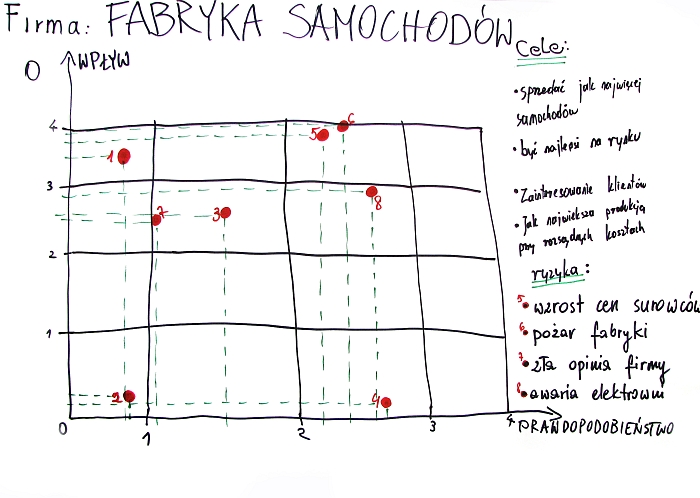 Firma: FABRYKA SAMOCHODÓW
O
WPŁYW
Cele:
• sprzedać jak najwięcej
samochodów
• być najlepsi na rynku
• Zainteresowanie klientów
• Jak największa produkcja
przy rozsądnych kosztach
ryzyka:
5 • wzrost cen surowców
6 • pożar fabryki
7 • zła opinia firmy
8 • awaria elektrowni
4
3
2
1
0
1
2
3
4
PRAWDOPODOBIEŃSTWO
1
2
3
4
5
6
7
8